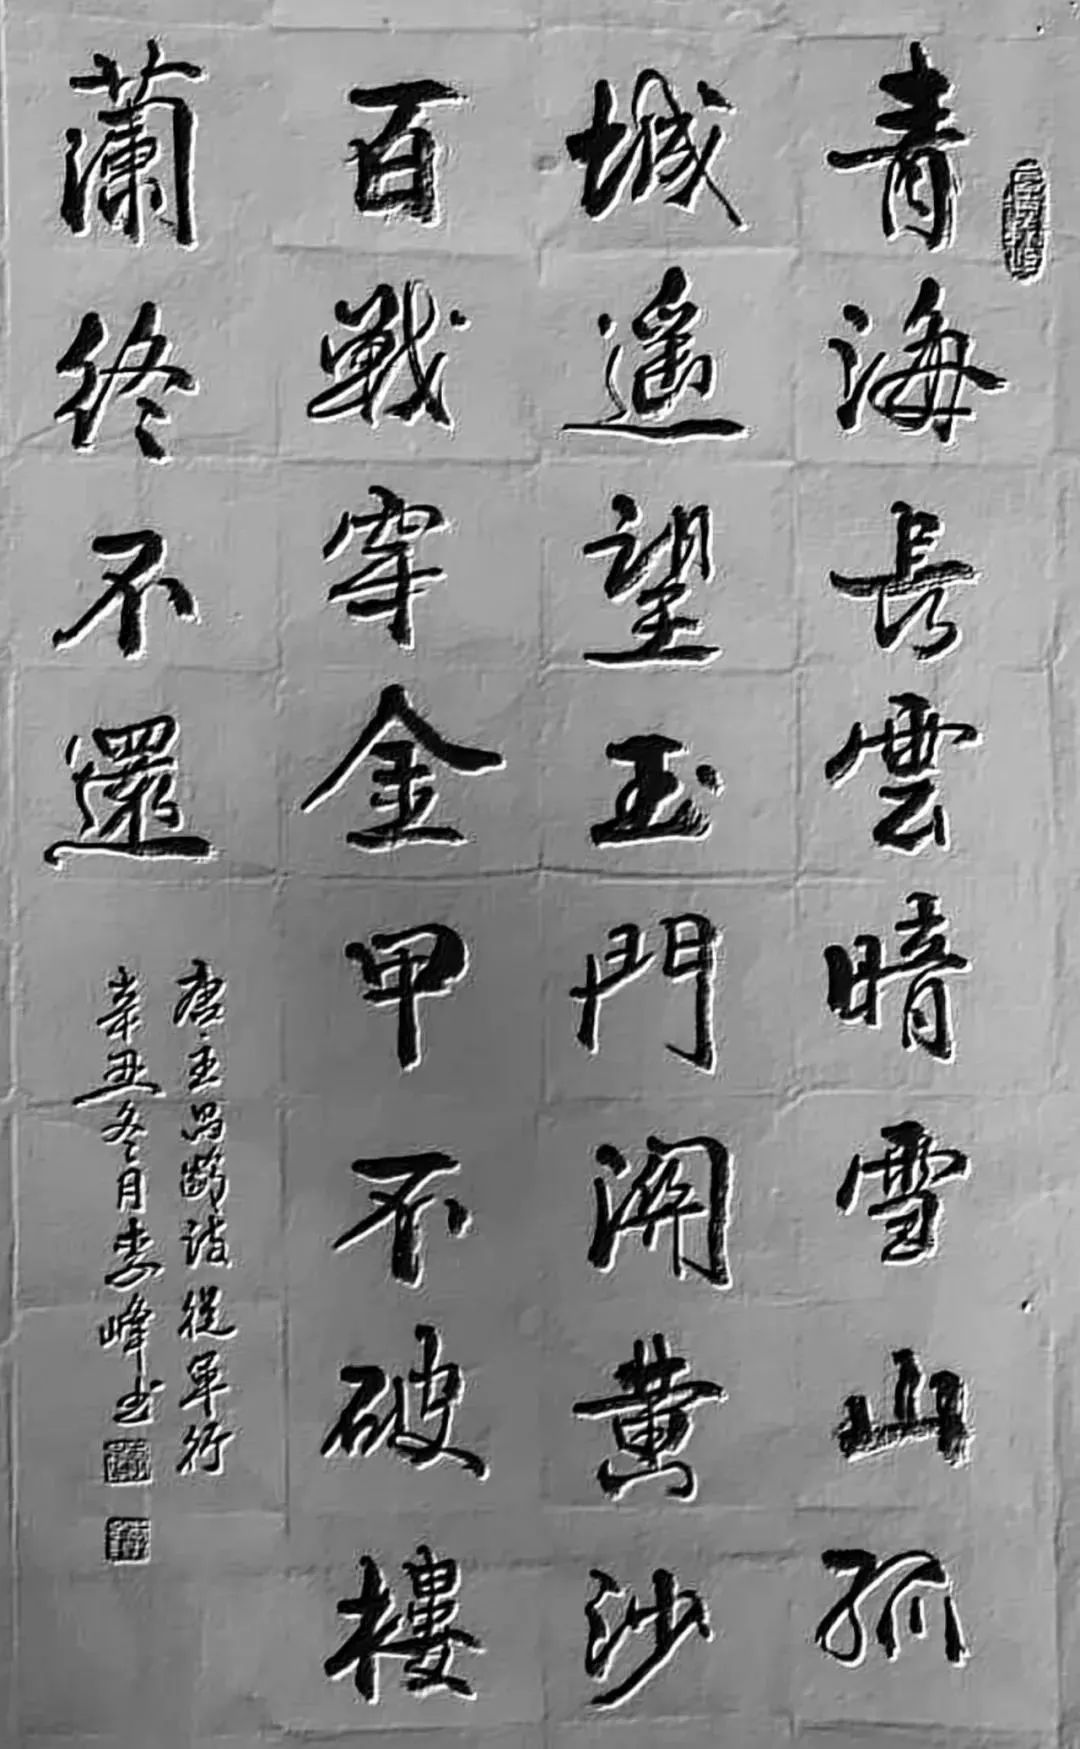 青海長雲暗雪山孤
城遥望玉門関黄沙
百戰穿金甲不破樓
蘭終不還
唐王昌齡詩從軍行
辛丑冬月李峰书